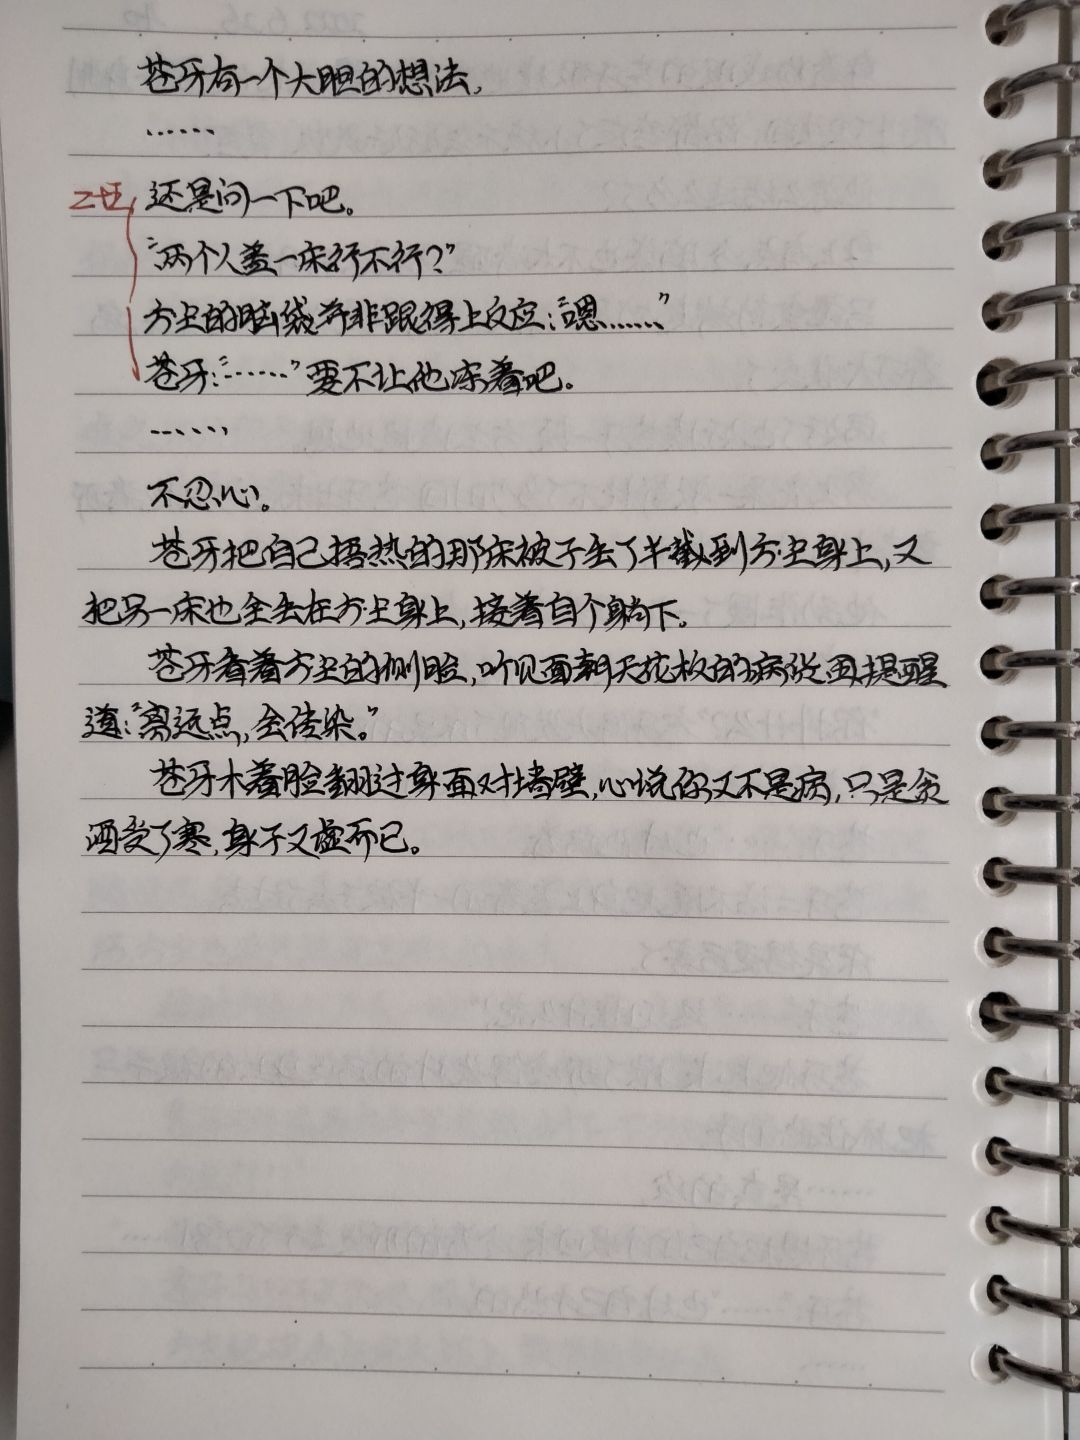 苍牙有一个大胆的想法,
……
还是问一下吧。
“两个人盖一床行不行?”
方士的脑袋并非跟得上反应:“嗯……”
苍牙:“……”要不让他冻着吧。
……
不忍心。
苍牙把自己捂热的那床被子丢了半截到方士身上,又
把另一床也全丢在方士身上,接着自个躺下。
苍牙看着方士的侧脸,听见面朝天花板的病号再提醒
道:“离远点,会传染。”
苍牙木着脸翻过身面对墙壁,心说你又不是病,只是贪
酒受了寒,身子又虚而已。